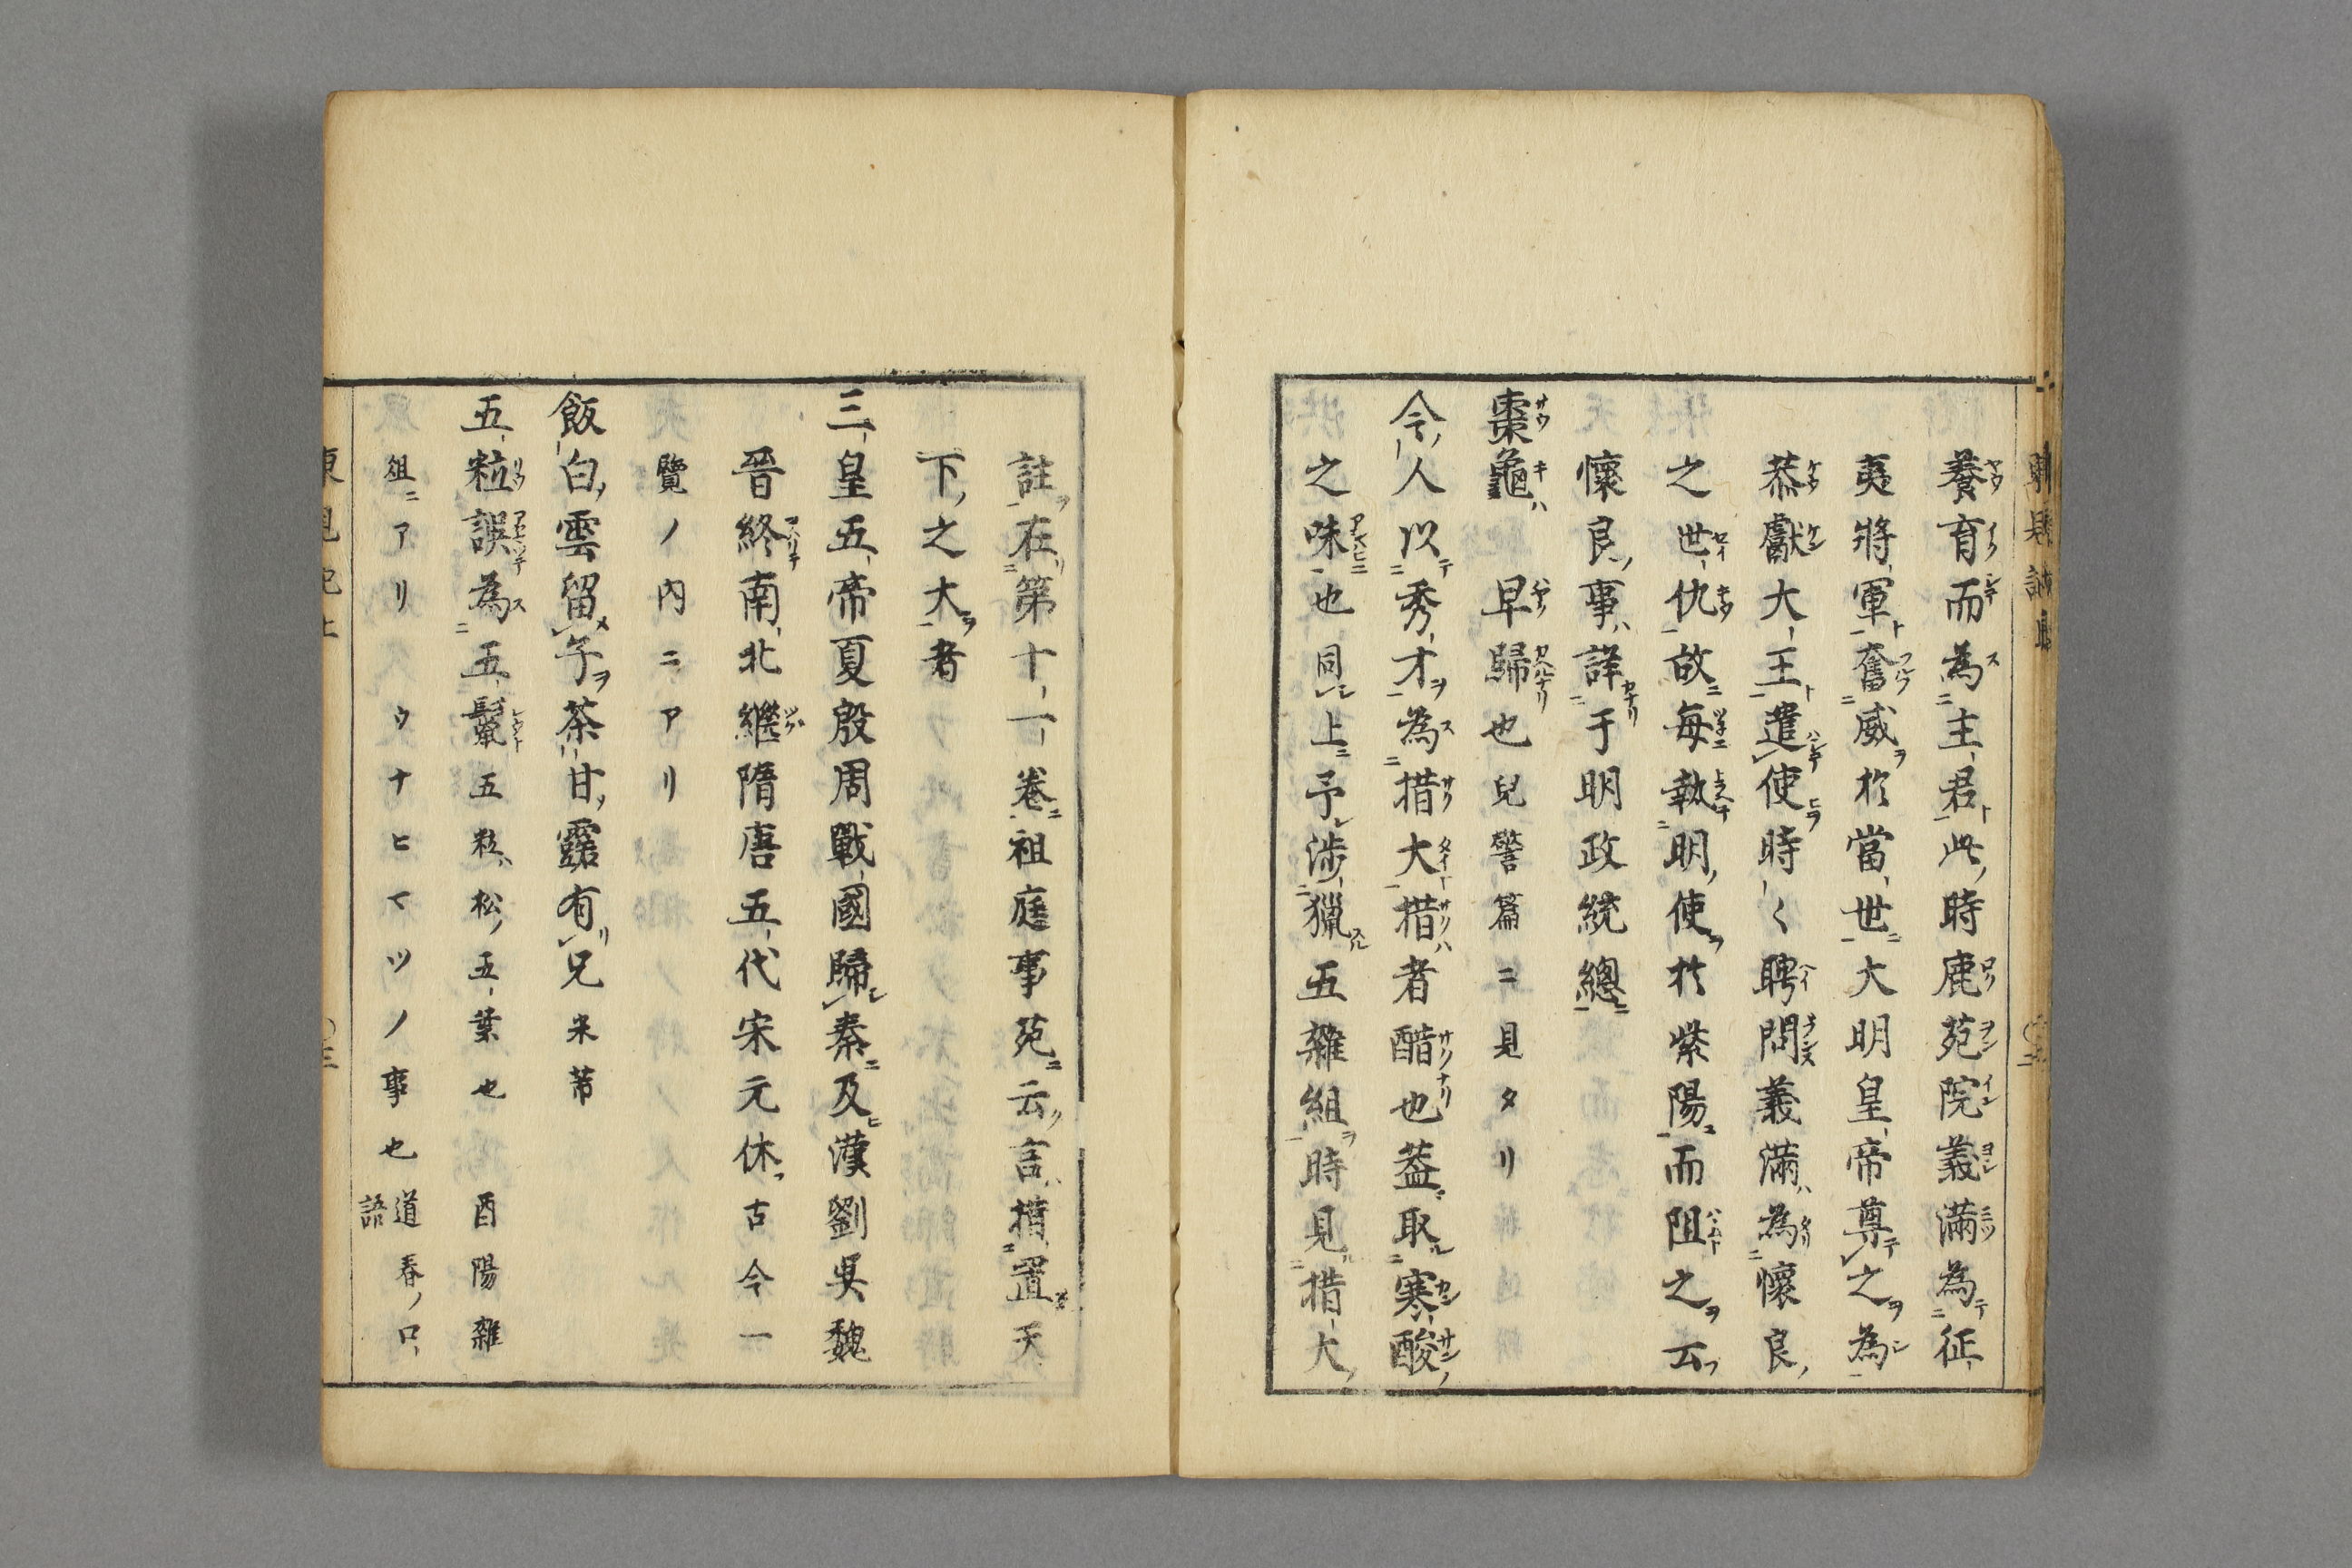 養育而為主君此時鹿苑院義滿為征
夷將軍奮威於當世大明皇帝尊之為
恭獻大王遣使時〻聘問義滿為懷良
之世仇故每執明使於紫陽而阻之云
懷良事詳于明政統總
棗龜 早歸也兒警篇ニ見タリ
今人以秀才為措大措者醋也蓋取寒酸
之味也同上予涉獵五雜組時見措大
註在第十一卷祖庭事苑云言措置天
下之大者
三皇五帝夏殷周戰國歸秦及漢劉吳魏
晉終南北繼隋唐五代宋元休古今一
覽ノ內ニアリ
飯白雲留子茶甘露有兄 朱芾
五粒誤為五鬣五粒松五葉也 酉陽雜
俎ニアリ ウナヒマツノ事也 道春ノ口語